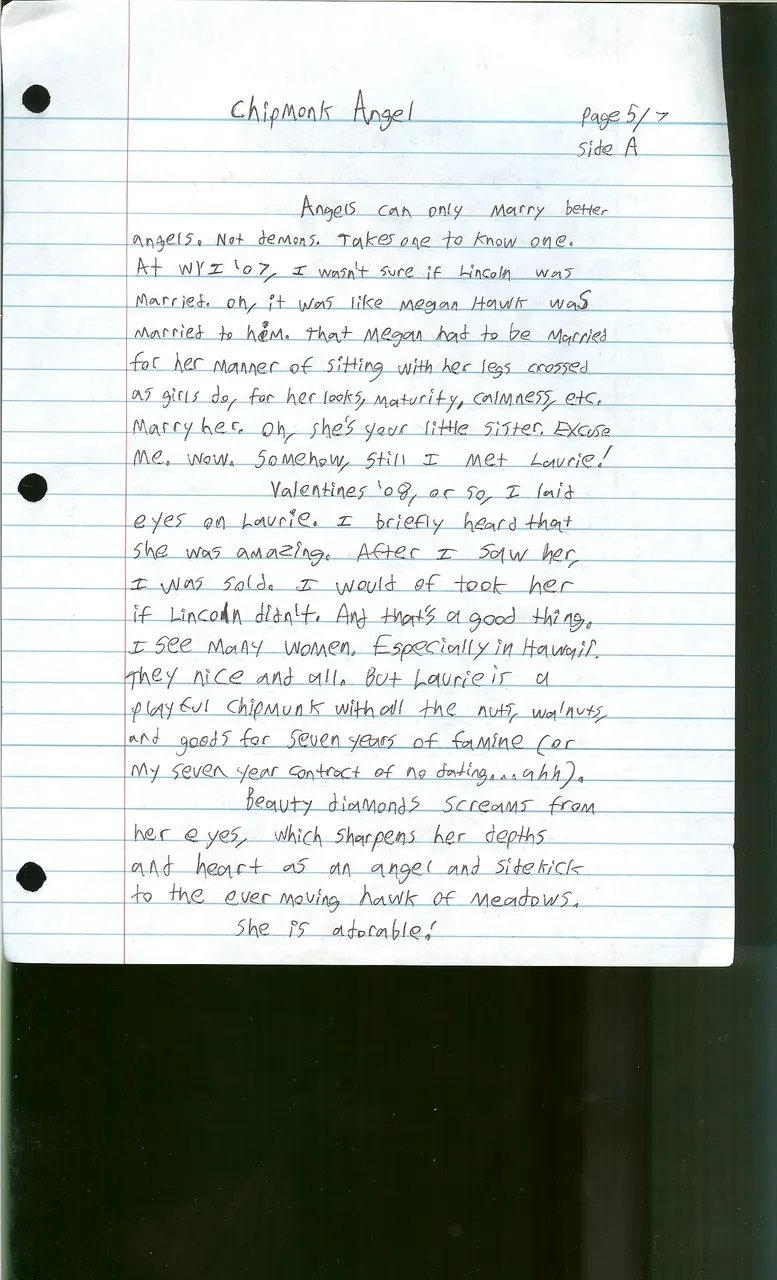 Chipmonk Angel
Page 5/7
Side A
Angels can only marry better
angels. Not demons. Takes one to know one.
At WYI '07, I wasn't sure if Lincoln was
married. Oh, it was like Megan Hawk was
married to him. That Megan had to be married
for her manner of sitting with her legs crossed
as girls do, for her looks, maturity, calmness, etc.
Marry her. Oh, she's your little sister. Excuse
me. Wow. Somehow, still I met Laurie!
Valentines '08, or so, I laid
eyes on Laurie. I briefly heard that
she was amazing. After I saw her,
I was sold. I would of took her
if Lincoln didn't. And that's a good thing.
I see many women. Especially in Hawaii.
They nice and all. But Laurie is a
playful chipmunk with all the nuts, walnuts,
and goods for seven years of famine (or
my seven year contract of no dating...ahh).
Beauty diamonds screams from
her eyes, which sharpens her depths
and heart as an angel and sidekick
to the ever moving hawk of meadows.
She is adorable!